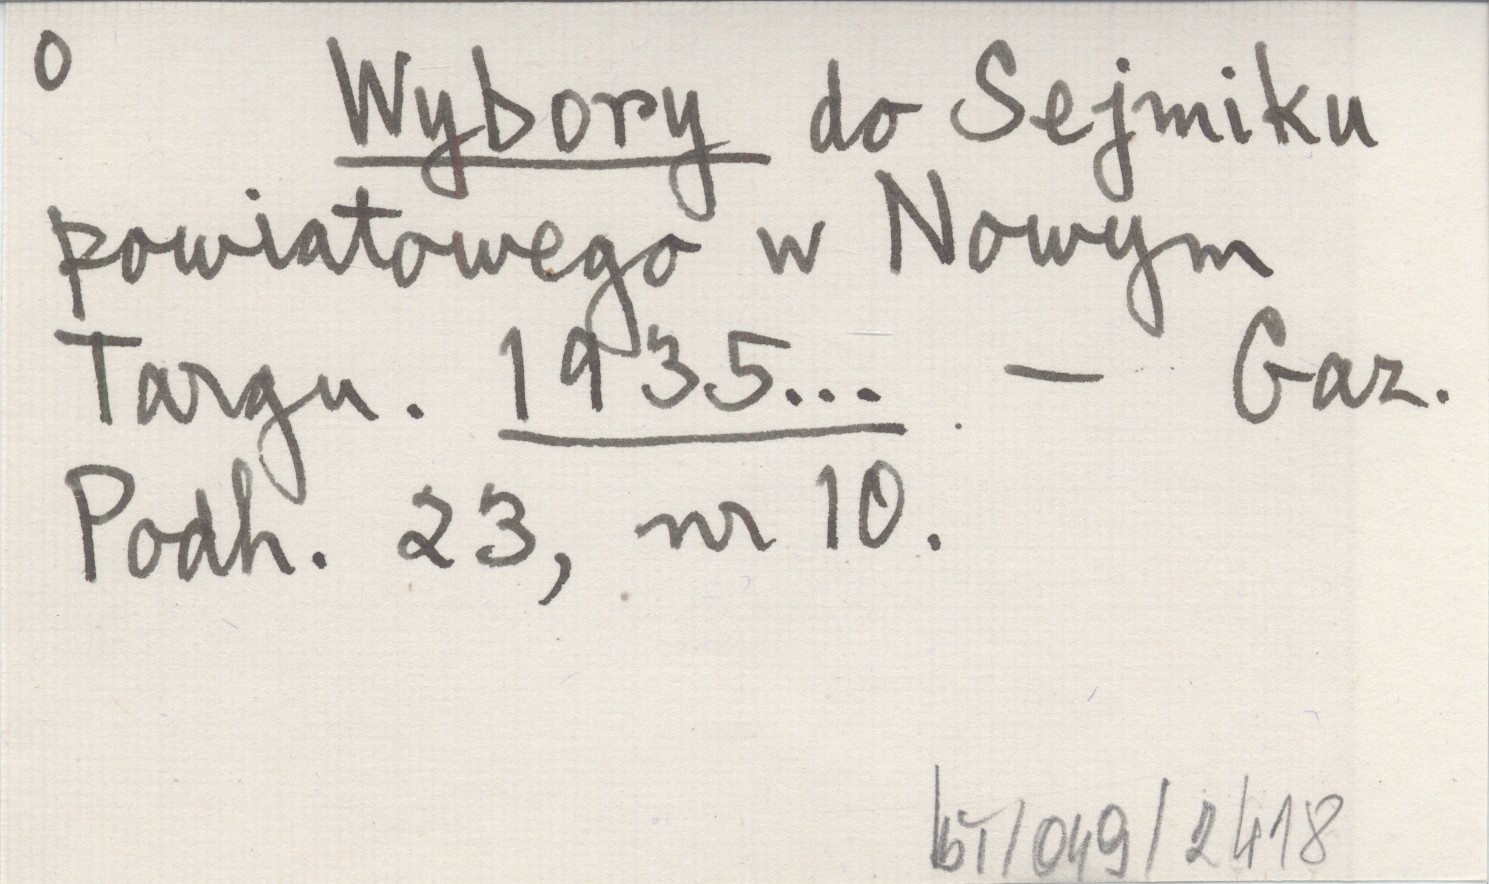 0
Wybory do Sejmiku
powiatowego w Nowym
Targu. 1935... — Gaz.
Podh. 23, nr 10.
/049/2418